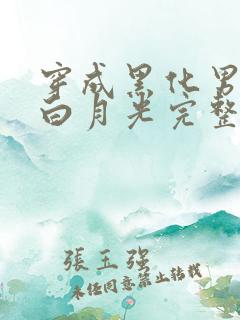 穿成黑化男
白月光完整
張玉強
未经同意禁止转载